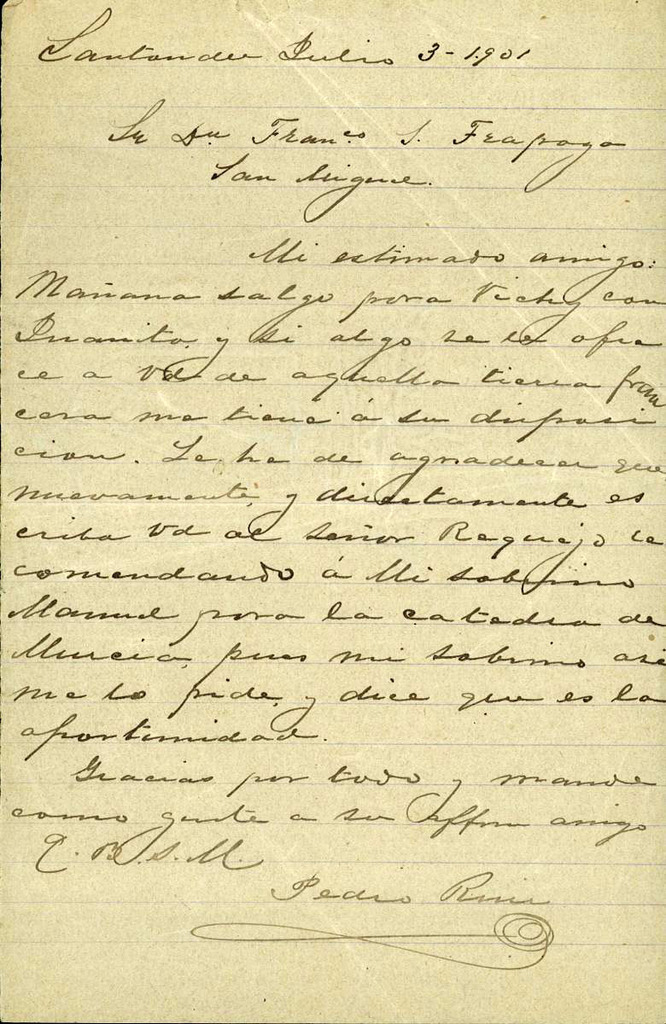 Santander Julio 3-1901
Sr Dn Franco S. Trapaga
San Miguel.
Mi estimado amigo:
Mañana salgo para Vichy con
Juanito, y si algo se le ofre
ce a Vd de aquella tierra fran
cesa me tiene á su disposi
cion. Le he de agradecer que
nuevamente, y directamente es
criba Vd al Señor Requejo re
comendando á Mi sobrino
Manuel para la catedra de
Murcia, pues mi sobrino asi
me lo pide, y dice que es la
oportunidad.
Gracias por todo y mande
como guste a su affmo amigo
Q. B. S. M.
Pedro